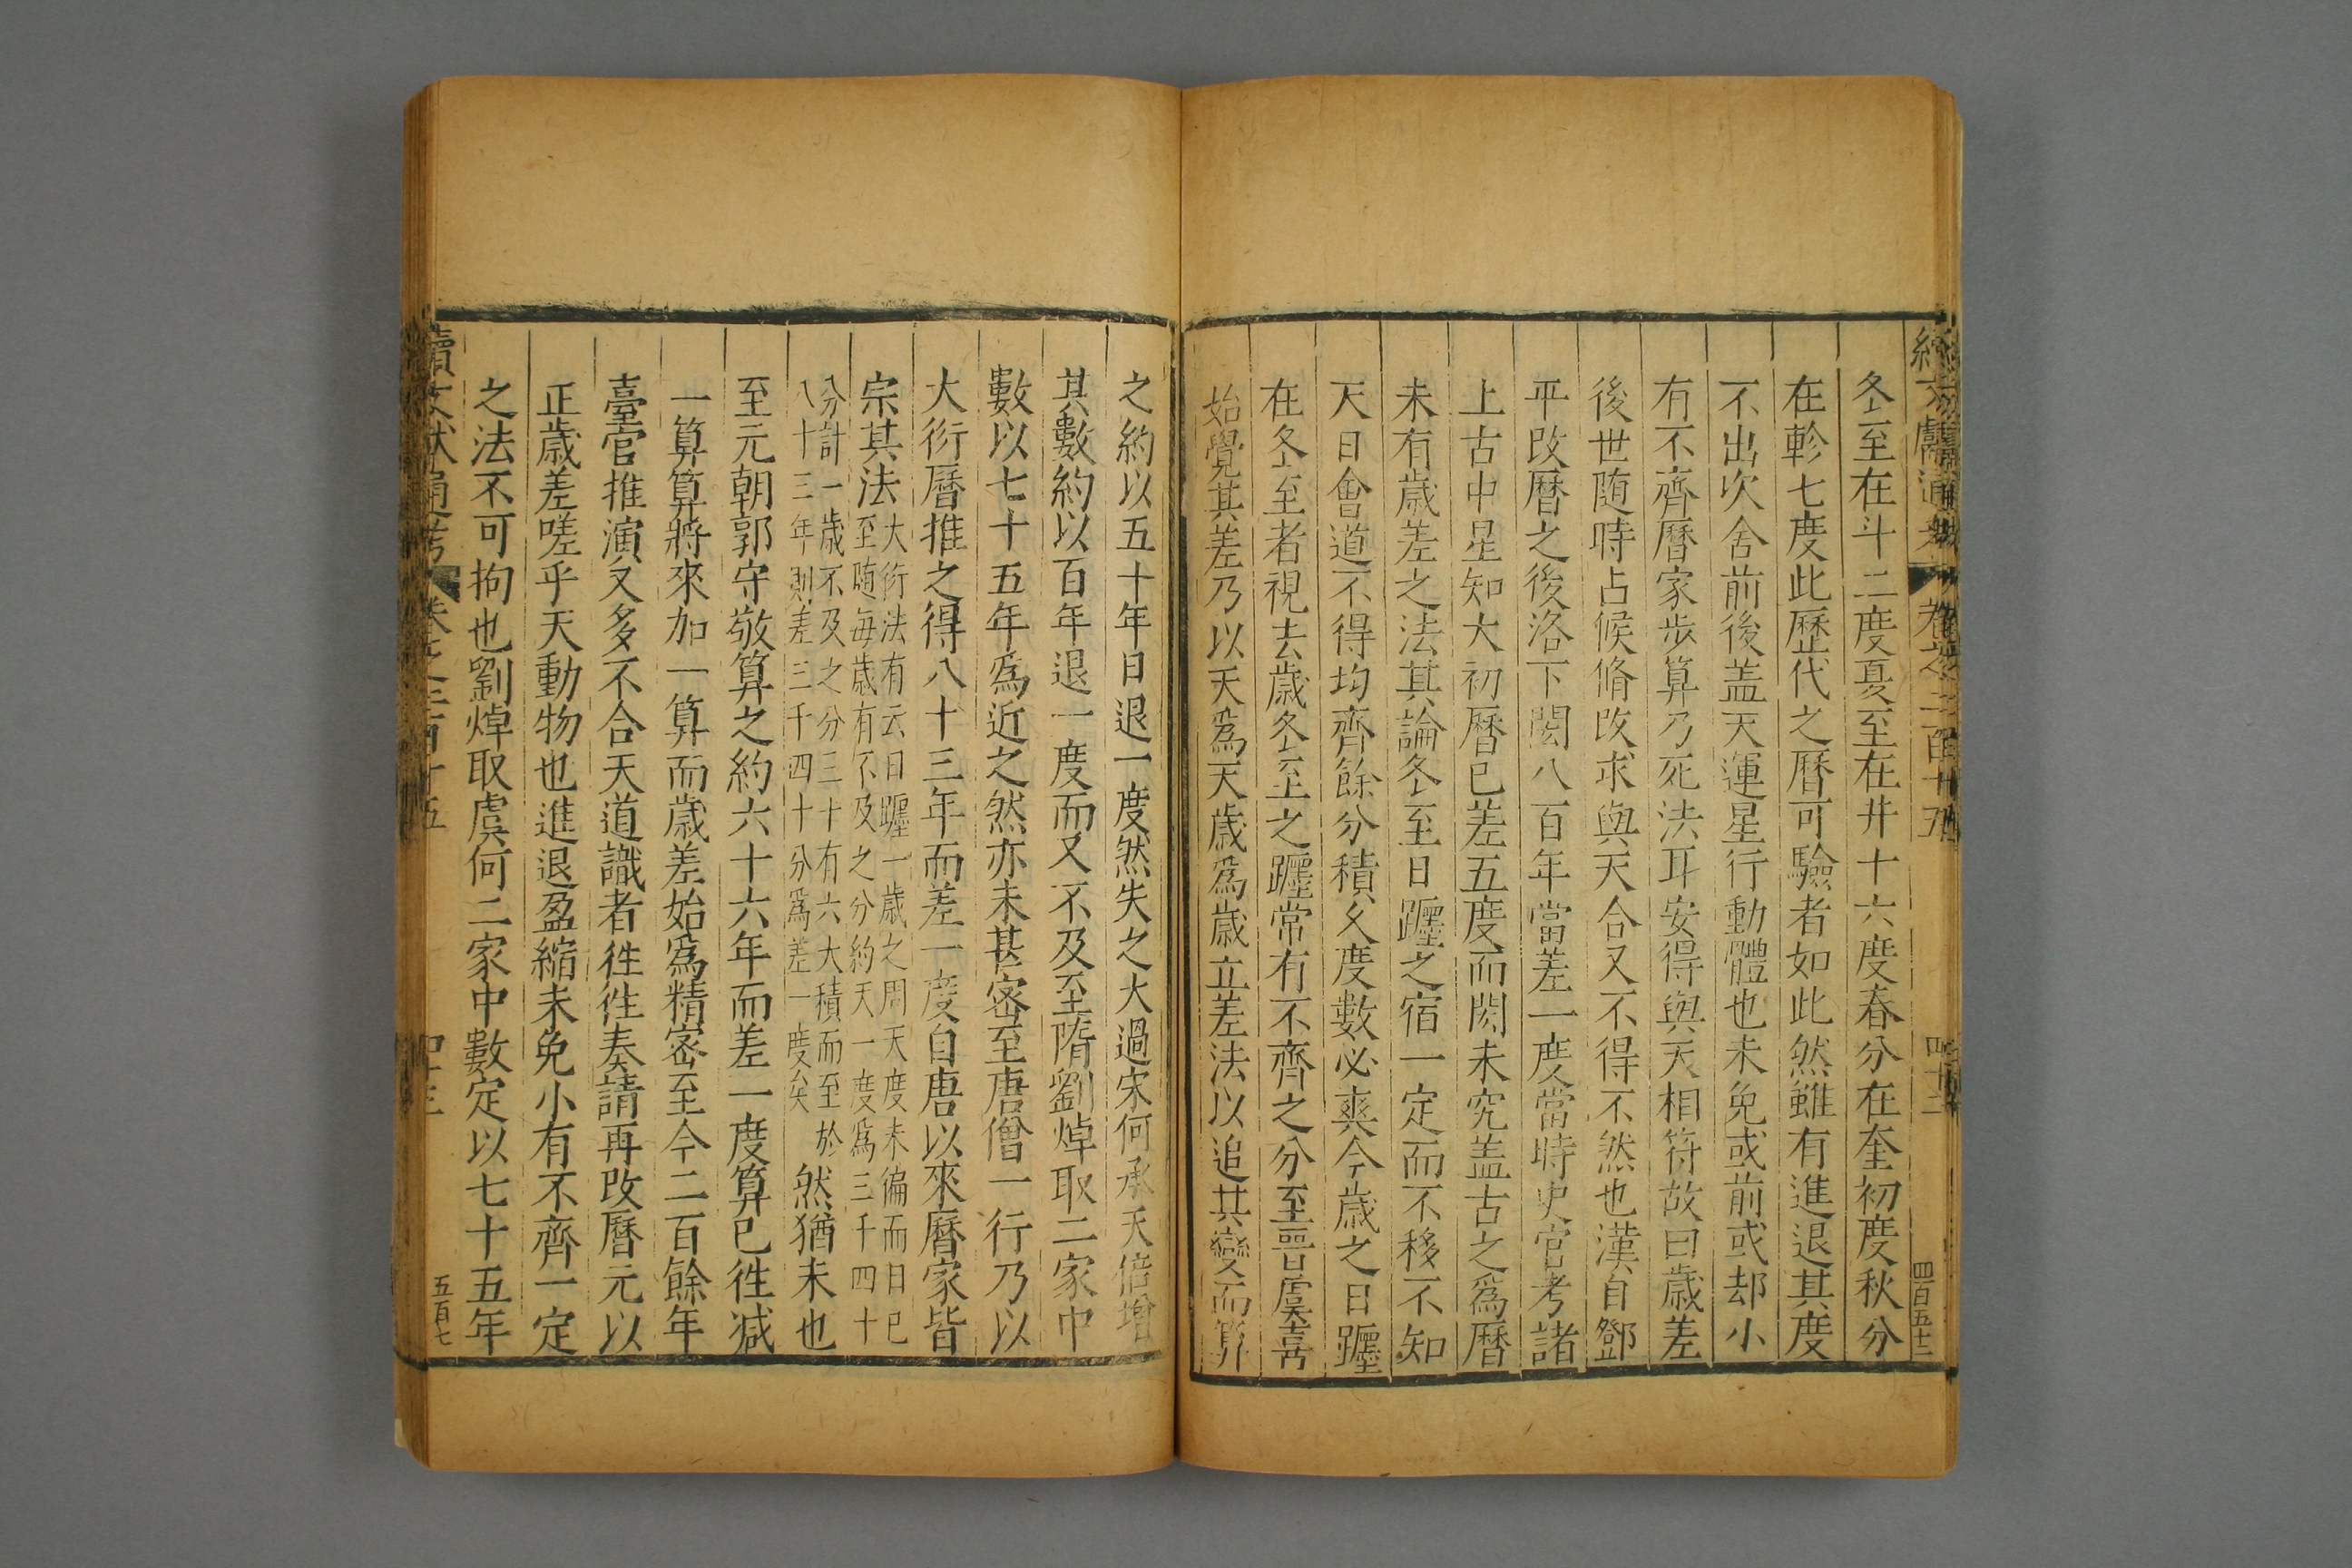 續文獻通考 卷之二百十五 四十二 四百五十二
冬至在斗二度夏至在井十六度春分在奎初度秋分
在軫七度此歷代之曆可驗者如此然雖有進退其度
不出次舍前後盖天運星行動體也未免或前或却小
有不齊曆家步算乃死法耳安得與天相符故曰歲差
後世随時占候脩改求與天合又不得不然也漢自鄧
平改曆之後洛下閎八百年當差一度當時史官考諸
上古中星知大初曆已差五度而閎未究盖古之爲曆
未有歲差之法其論冬至日躔之宿一定而不移不知
天日會道不得均齊餘分積久度數必爽今歲之日躔
在冬至者視去歲冬至之躔常有不齊之分至晋虞喜
始覺其差乃以天爲天歲爲歲立差法以追其變而算
之約以五十年日退一度然失之大過宋何承天倍增
其數約以百年退一度而又不及至隋劉焯取二家中
數以七十五年爲近之然亦未甚密至唐僧一行乃以
大衍曆推之得八十三年而差一度自唐以來曆家皆
宗其法
大衍法有云日躔一歲之周天度未徧而日已
至随每歲有不及之分約天一度爲三千四十
分計一歲不及之分三十有六大積而至於
八十三年則差三千四十分爲差一度矣
然猶未也
至元朝郭守敬算之約六十六年而差一度算已徃减
一算算將來加一算而歲差始爲精密至今二百餘年
臺官推演又多不合天道識者徃徃奏請再改曆元以
正歲差嗟乎天動物也進退盈縮未免小有不齊一定
之法不可拘也劉焯取虞何二家中數定以七十五年
續文獻通考 卷之二百十五 四十三 五百七